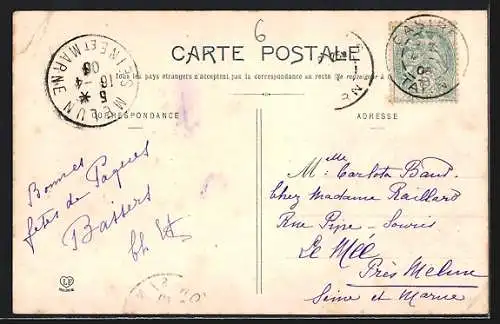 6
CARTE POSTALE
Tous les pays étrangers n'acceptent pas la correspondance au recto (se renseigner à
CORRESPONDANCE
ADRESSE
MELUN
SEINE ET MARNE
5 *
16 - 4
06
CASTRES
TARN
RN
Bonnes
fêtes de Pâques
Baisers
Ch
Melle Carlota
Chez Madame Raillard
Rue Pipe-Souris
Le Mée
Près Melun
Seine et Marne
LF